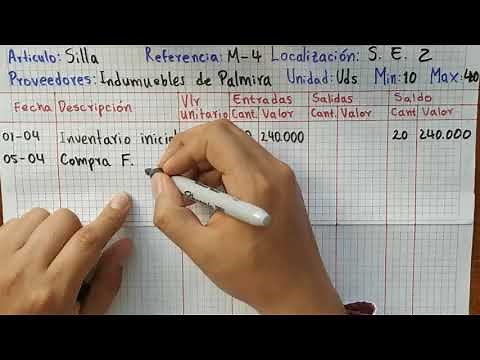 Articulo: Silla Referencia: M-4 Localización: S. E. 2
Proveedores: Indumuebles de Palmira Unidad: Uds Min: 10 Max: 40
Fecha Descripción Vlr unitario Entradas Cant. Valor Salidas Cant. Valor Saldo Cant Valor
01-04 Inventario inicial 240.000 20 240.000
05-04 Compra F.